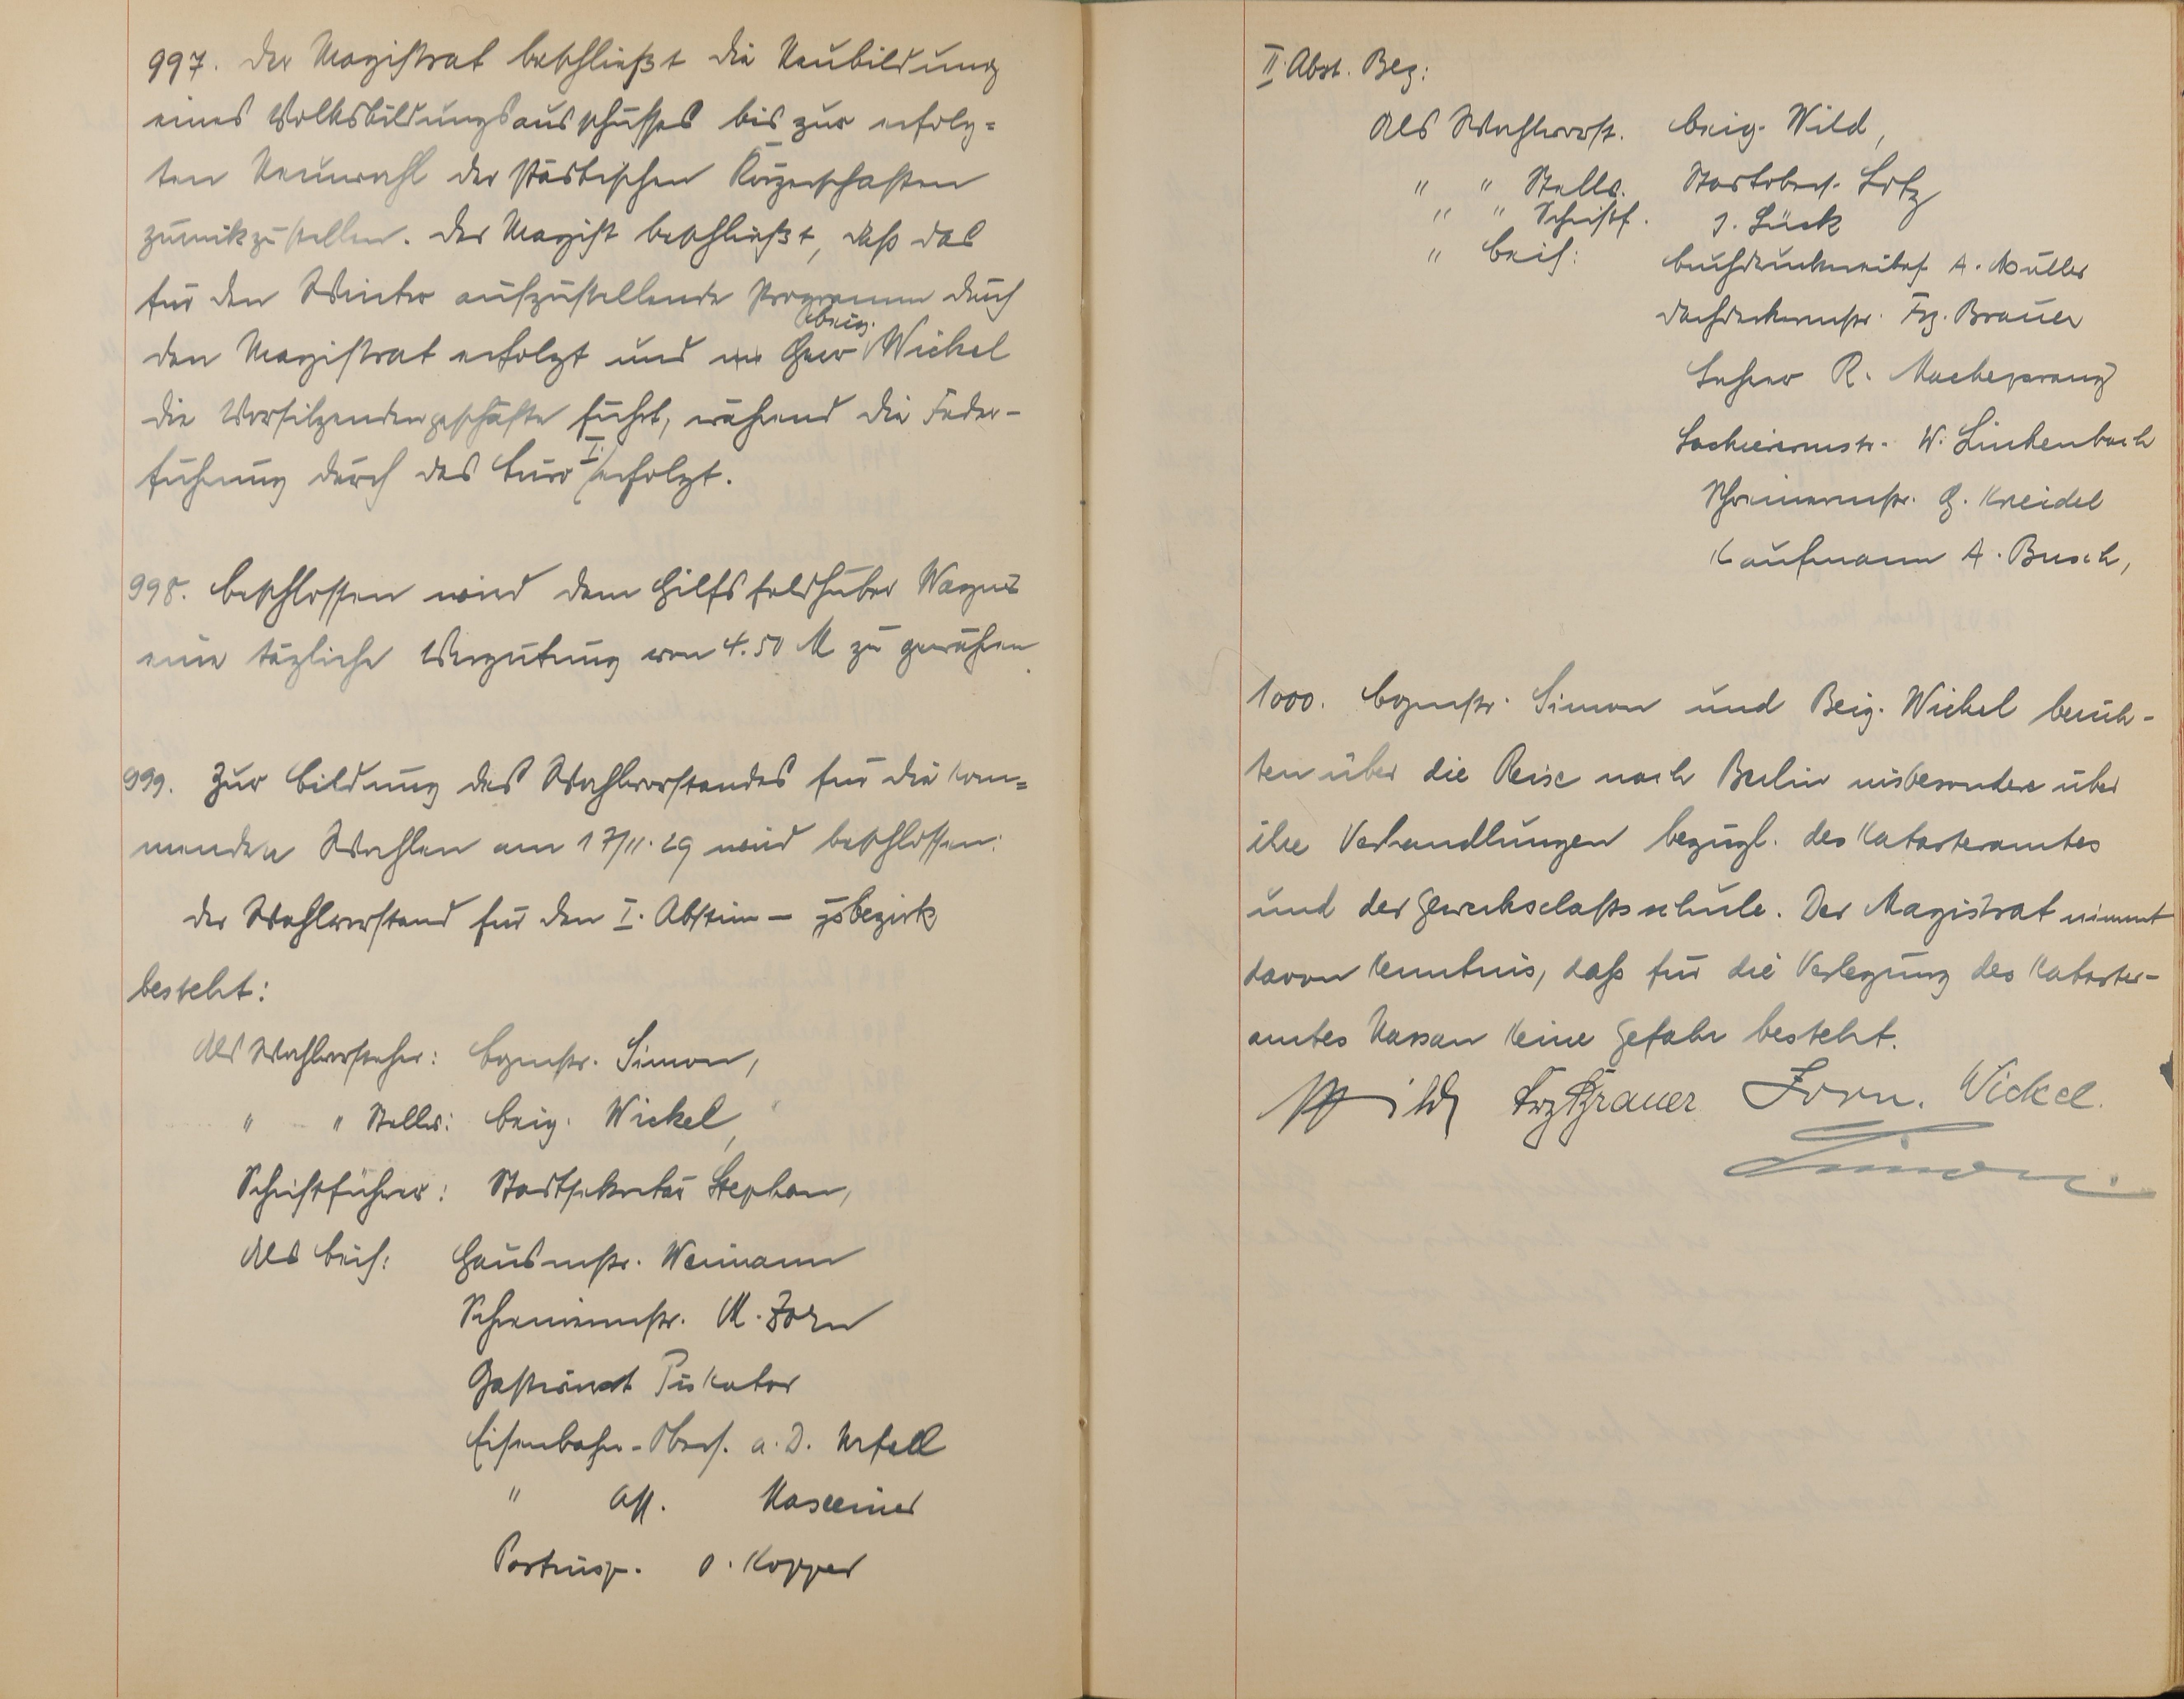 997. Der Magistrat beschließt die Neubildung
eines Volksbildungsausschusses bis zur erfolg=
ten Neuwahl der städtischen Körperschaften
zurückzustellen. Der Magist beschließt, daß das
für den Winter aufzustellende Programm durch
den Magistrat erfolgt und Herr Beig. Wickel
die Vorsitzendengeschäfte führt, während die Feder-
führung durch das Büro I. erfolgt.
998. Beschlossen wird dem Hilfsfeldhüter Wagner
eine tägliche Vergütung von 4.50 M zu gewähren.
999. Zur Bildung des Wahlvorstandes für die kom=
menden Wahlen am 17/11.29 wird beschlossen:
Der Wahlvorstand für den I. Abstim- gsbezirk
besteht:
Als Wahlvorsteher: Bgmstr. Simon,
" " Stellv: Beig. Wickel,
Schriftführer: Stadtsekretär Stephan,
Als Beis: Hausmstr. Weimann
Schreinermstr. M. Zorn
Gastwirt Piskator
Eisenbahn-Obers. a. D. Urfell
" Ass.
Postinsp. O. Kopper
II. Abst. Bez:
Als Wahlvorst. Beig. Wild,
" " Stellv. Stadtobers. Lotz
" " Schriftf. J. Lück
" Beis: Buchdruckereibes. A. Müller
Dachdeckermstr. Frz. Brauer
Lehrer R. Macheprang
Lackierermstr. W. Linkenbach
Schreinermstr. G. Kneidel
Kaufmann A. Busch,
1000. Bgmstr. Simon und Beig. Wickel berich-
ten über die Reise nach Berlin insbesondere über
ihre Verhandlungen bezügl. des Katasteramtes
und der Gewerkschaftsschule. Der Magistrat nimmt
davon Kenntnis, daß für die Verlegung des Kataster-
amtes Nassau keine Gefahr besteht.
Wild Frz Brauer Zorn. Wickel.
Simon